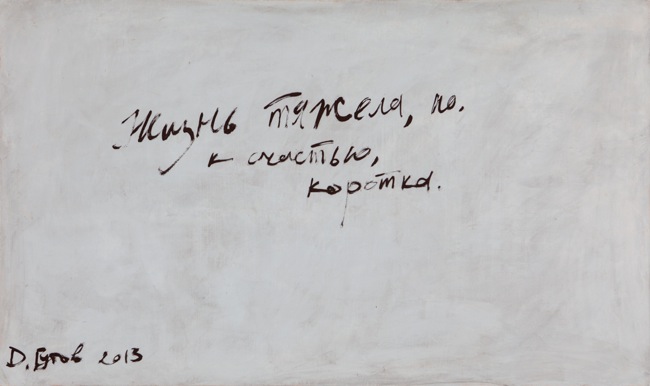 Жизнь тяжела, но.
к счастью,
коротка.
Д. Гутов 2013